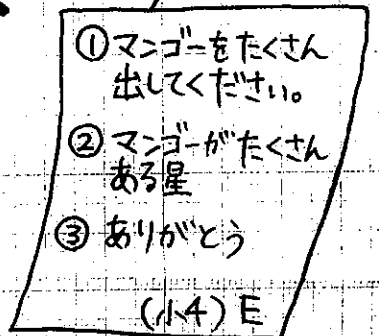 ①マンゴーをたくさん
出してください。
②マンゴーがたくさん
ある星
③ありがとう
(小4)E